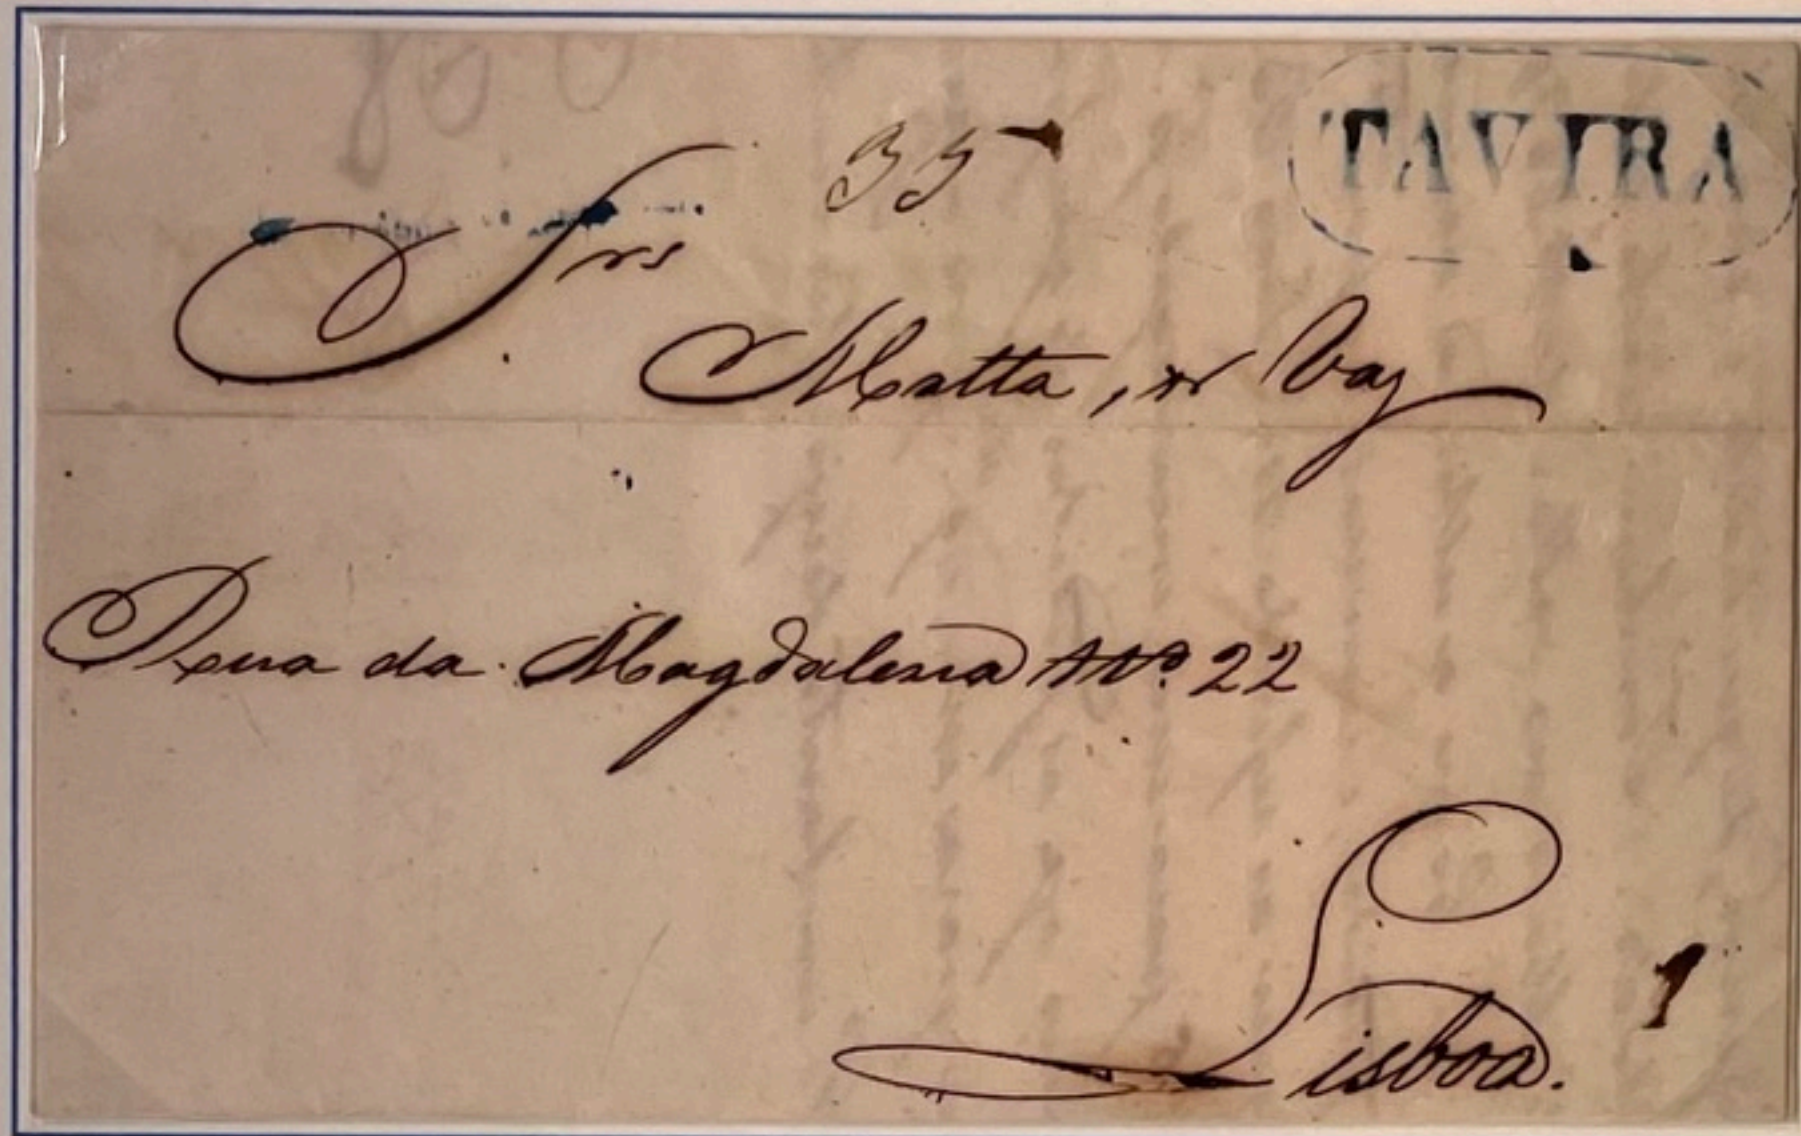 TAVIRA
35
Srs
Matta, & Vaz
Rua da Magdalena Nº 22
Lisboa.
1